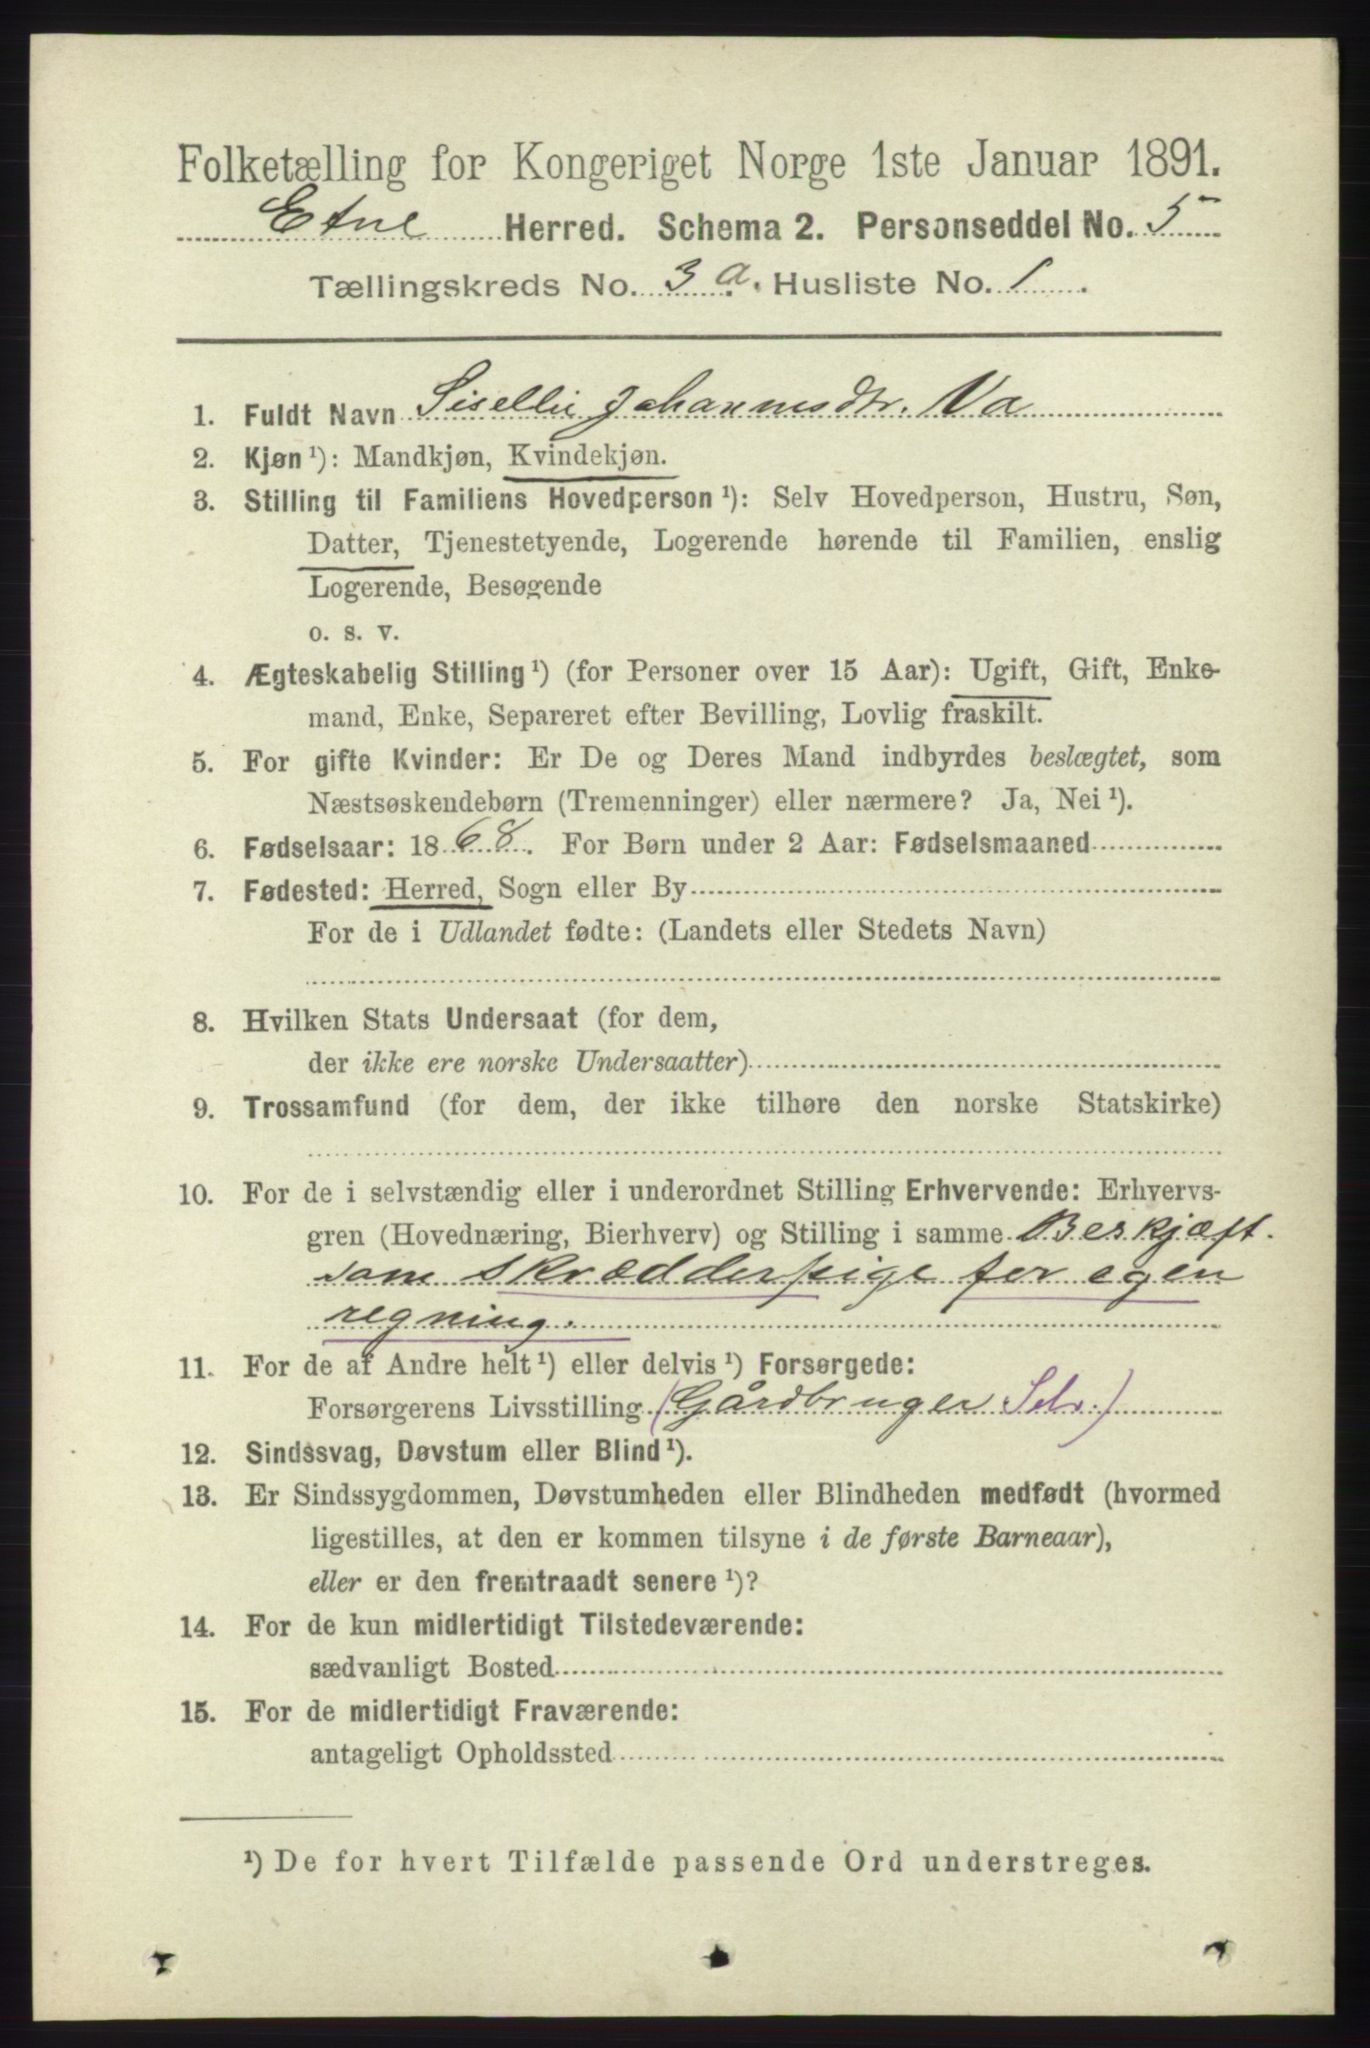 Folketælling for Kongeriget Norge 1ste Januar 1891.
Etne Herred. Schema 2. Personseddel No. 5
Tællingskreds No. 3 a. Husliste No. 1.
1. Fuldt Navn Sisellie Johannesdtr. Va
2. Kjøn ¹): Mandkjøn, Kvindekjøn.
3. Stilling til Familiens Hovedperson ¹): Selv Hovedperson, Hustru, Søn,
Datter, Tjenestetyende, Logerende hørende til Familien, enslig
Logerende, Besøgende
o. s. v.
4. Ægteskabelig Stilling ¹) (for Personer over 15 Aar): Ugift, Gift, Enke-
mand, Enke, Separeret efter Bevilling, Lovlig fraskilt.
5. For gifte Kvinder: Er De og Deres Mand indbyrdes beslægtet, som
Næstsøskendebørn (Tremenninger) eller nærmere? Ja, Nei ¹).
6. Fødselsaar: 1868. For Børn under 2 Aar: Fødselsmaaned
7. Fødested: Herred, Sogn eller By
For de i Udlandet fødte: (Landets eller Stedets Navn)
8. Hvilken Stats Undersaat (for dem,
der ikke ere norske Undersaatter)
9. Trossamfund (for dem, der ikke tilhøre den norske Statskirke)
10. For de i selvstændig eller i underordnet Stilling Erhvervende: Erhvervs-
gren (Hovednæring, Bierhverv) og Stilling i samme Beskjæft.
som Skrædderpige for egen
regning.
11. For de af Andre helt ¹) eller delvis ¹) Forsørgede:
Forsørgerens Livsstilling (Gårdbruger Selv.)
12. Sindssvag, Døvstum eller Blind ¹).
13. Er Sindssygdommen, Døvstumheden eller Blindheden medfødt (hvormed
ligestilles, at den er kommen tilsyne i de første Barneaar),
eller er den fremtraadt senere ¹)?
14. For de kun midlertidigt Tilstedeværende:
sædvanligt Bosted
15. For de midlertidigt Fraværende:
antageligt Opholdssted
¹) De for hvert Tilfælde passende Ord understreges.